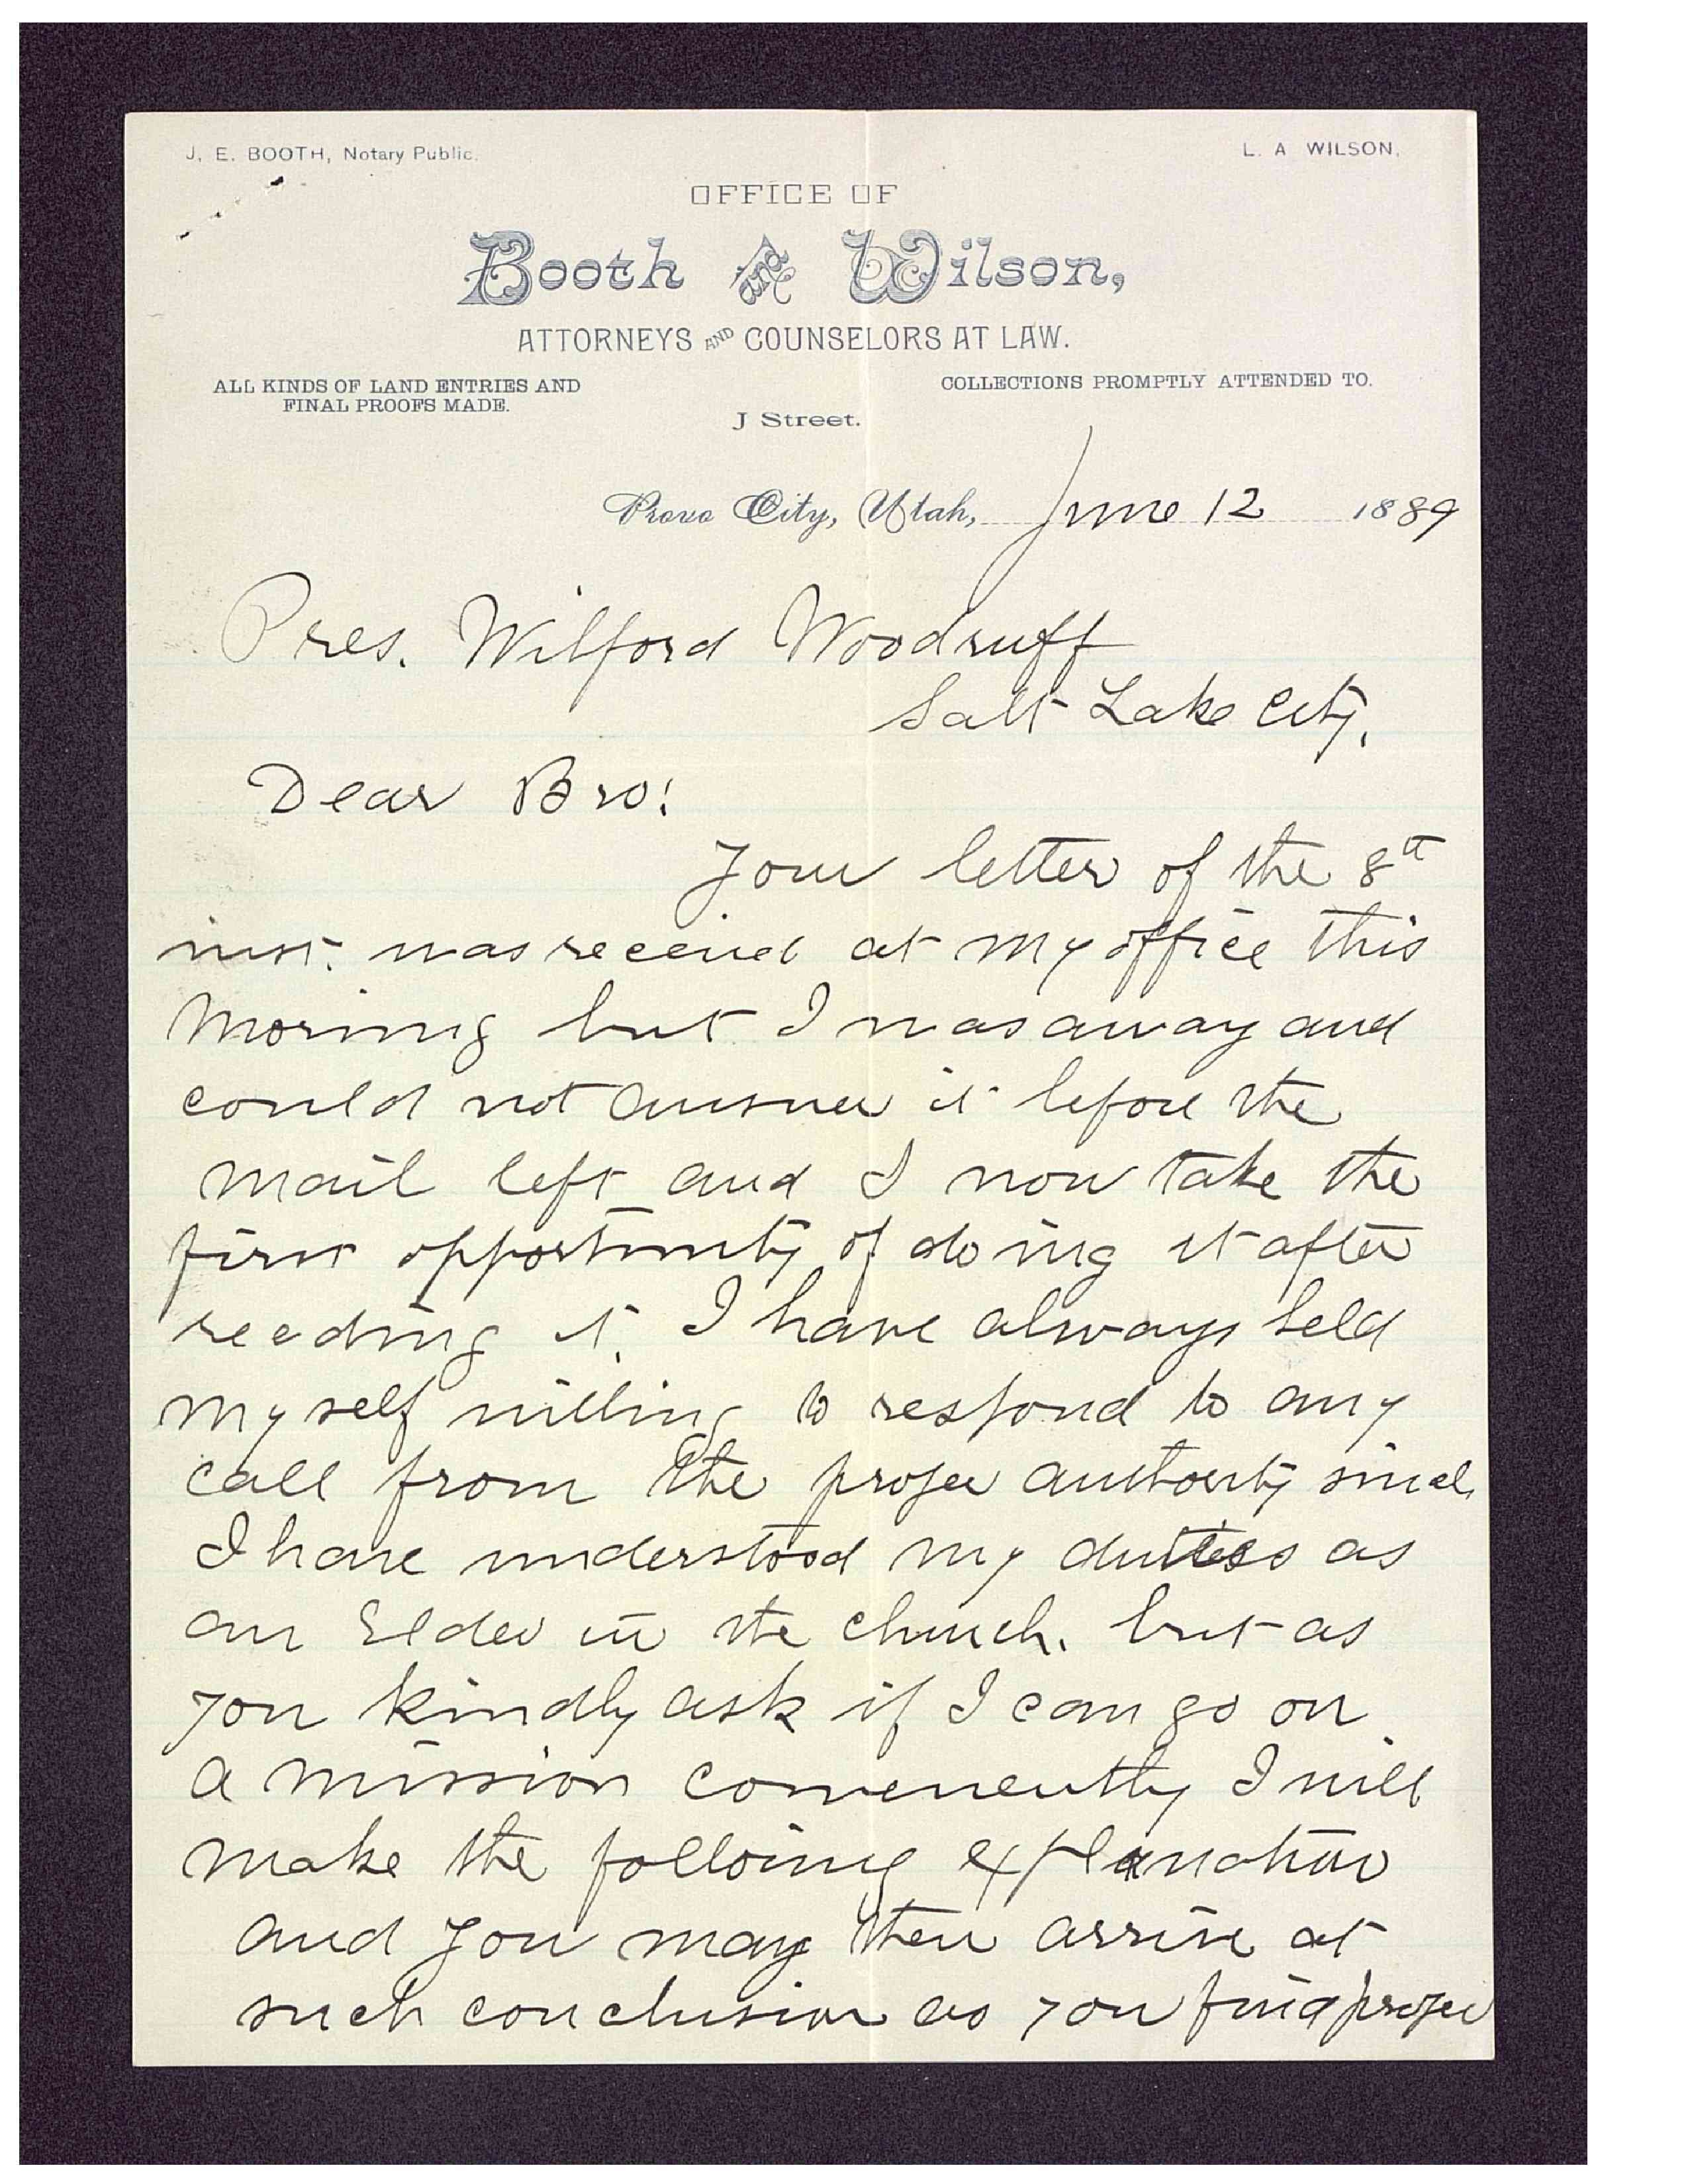 J. E. BOOTH, Notary Public.
L. A WILSON,
OFFICE OF
Booth and Wilson,
ATTORNEYS AND COUNSELORS AT LAW.
ALL KINDS OF LAND ENTRIES AND
FINAL PROOFS MADE.
COLLECTIONS PROMPTLY ATTENDED TO.
J Street.
Provo City, Utah, June 12 1889
Pres. Wilford Woodruff
Salt Lake City.
Dear Bro:
Your letter of the 8th
inst. was received at my office this
morning but I was away and
could not answer it before the
mail left and I now take the
first opportunity of doing it after
reading it. I have always held
myself willing to respond to any
call from the proper authority since
I have understood my duties as
an Elder in the church. but as
you kindly ask if I can go on
a mission conveniently I will
make the following explanation
and you may then arrive at
such conclusion as you find proper